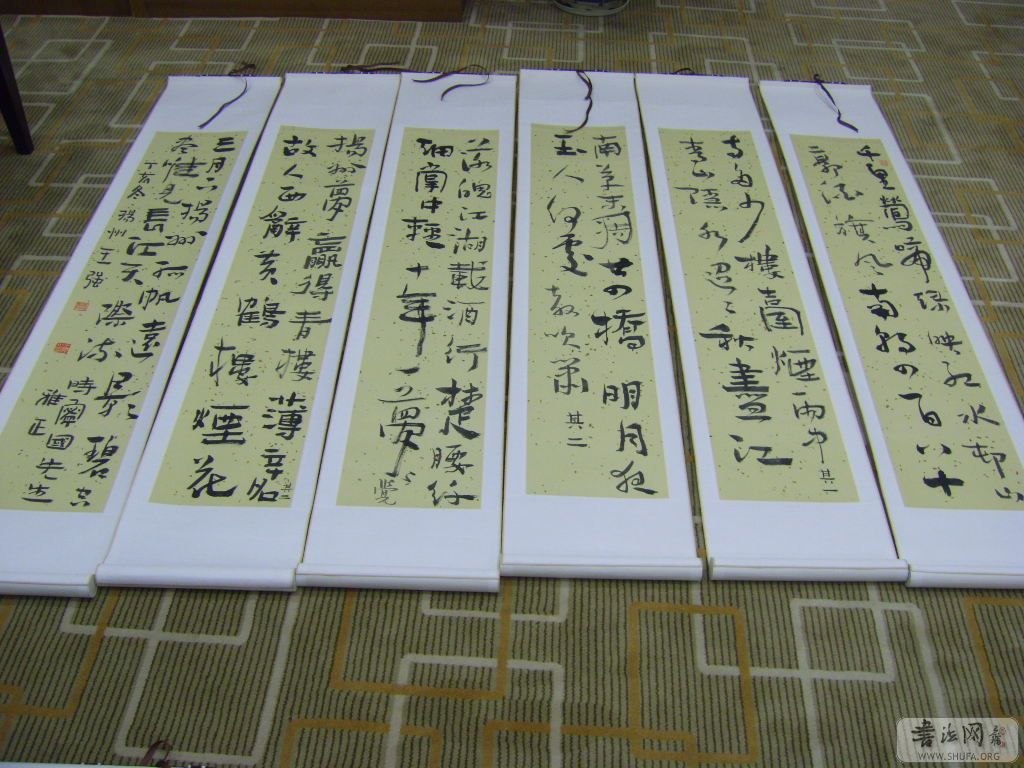 千里鶯啼绿映红水邨山
郭酒旗风南朝四百八十
寺多少樓臺煙雨中其一
青山隱水迢々秋盡江
南草未凋廿四橋明月夜
玉人何處教吹箫其二
落魄江湖載酒行楚腰纤
细掌中輕十年一夢覺
揚州夢贏得青樓薄幸名其三
故人西辭黄鶴樓煙花
三月下揚州孤帆遠影碧空
尽惟見長江天際流
國先生
雅正
丁亥冬揚州王强
書法网
WWW.SHUFA.ORG